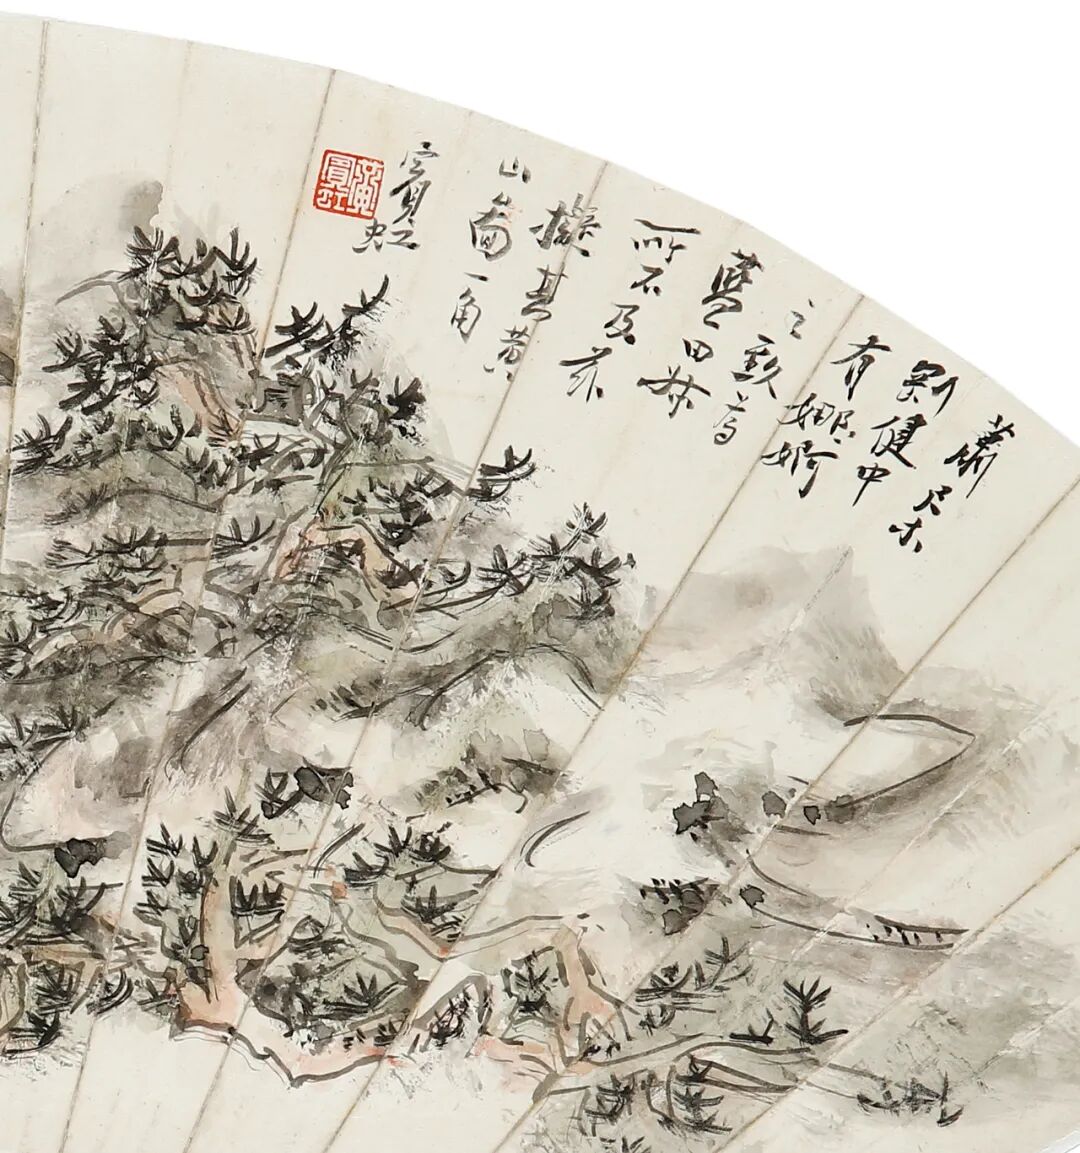 蕭尺木
剛健中
有娜婀
之致為
藍田叔
所不及茲
擬其黃
山圖一角
賓虹
黃賓虹